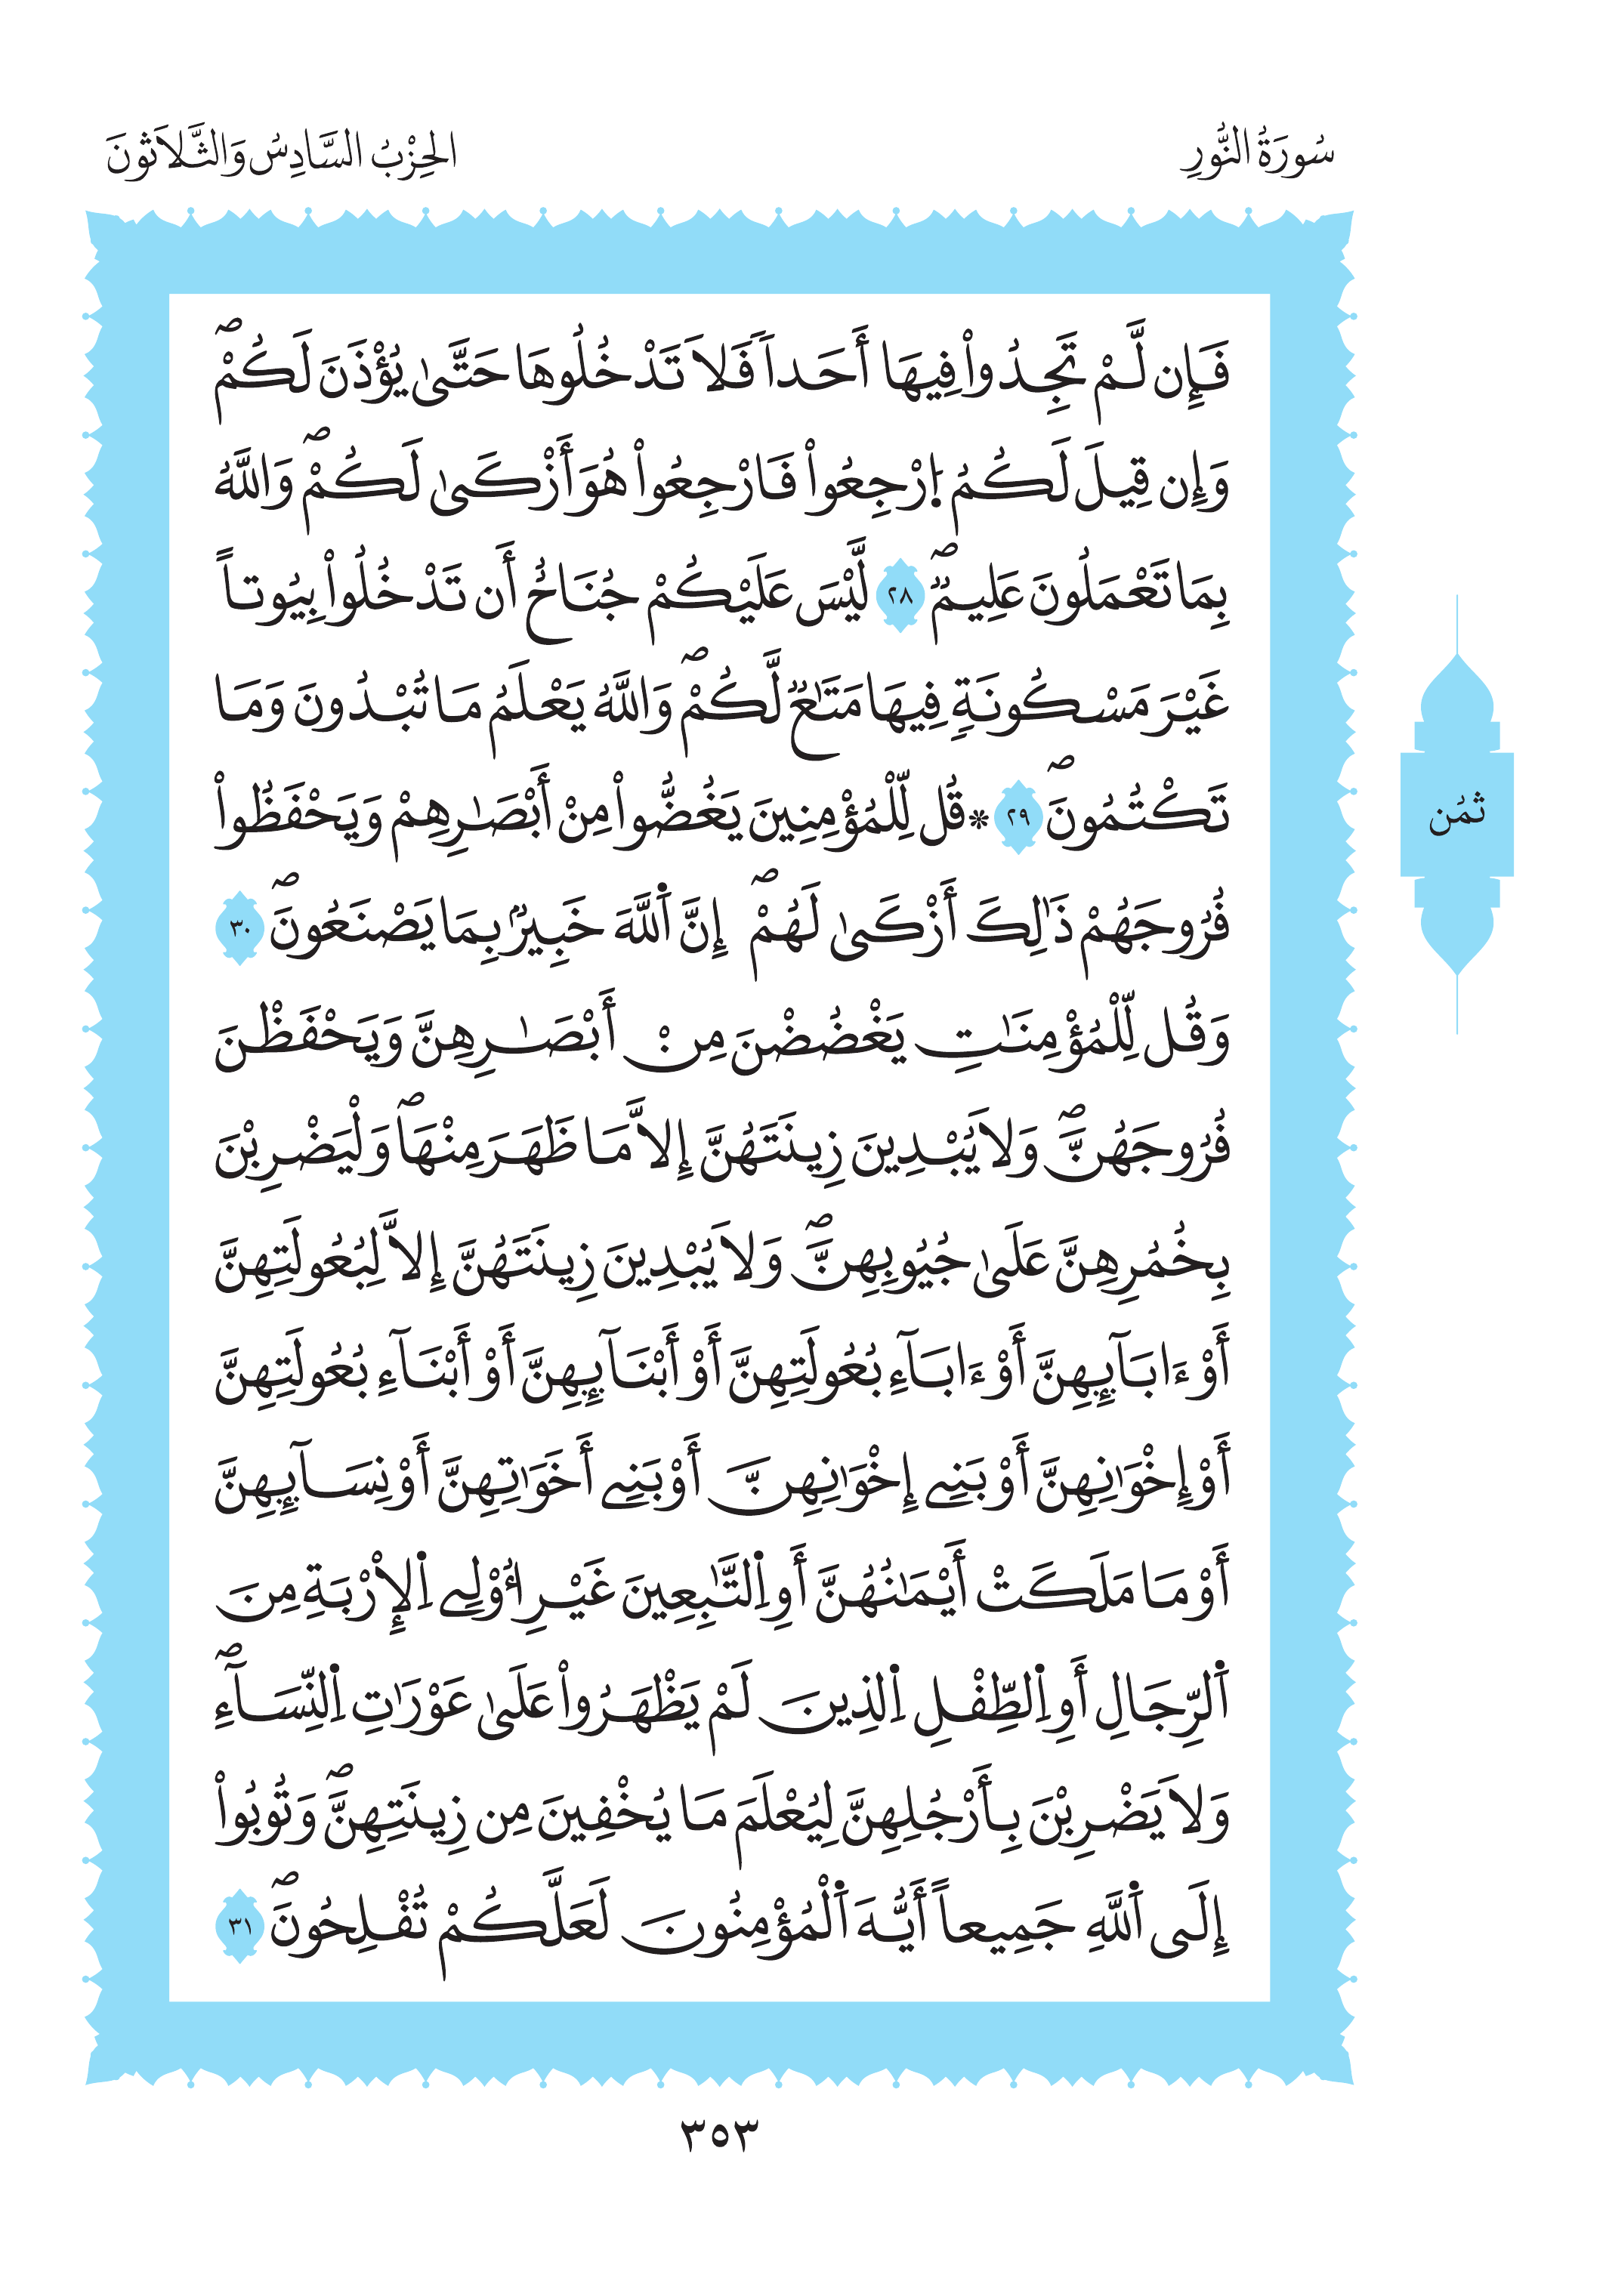 سُورَةُ النُّورِ
الحِزْبُ السَّادِسُ وَالثَّلَاثُونَ
فَإِن لَّمْ تَجِدُواْ فِيهَا أَحَداٗ فَلاَ تَدْخُلُوهَا حَتَّىٰ يُؤْذَنَ لَكُمْۖ
وَإِن قِيلَ لَكُمُ اُ۪رْجِعُواْ فَارْجِعُواْ هُوَ أَزْكَىٰ لَكُمْۖ وَاللَّهُ
بِمَا تَعْمَلُونَ عَلِيمٞۖ ٢٨ لَّيْسَ عَلَيْكُمْ جُنَاحٌ أَن تَدْخُلُواْ بِيُوتاً
غَيْرَ مَسْكُونَةٖ فِيهَا مَتَٰعٞ لَّكُمْۖ وَاللَّهُ يَعْلَمُ مَا تُبْدُونَ وَمَا
تَكْتُمُونَۖ ٢٩ ۞ قُل لِّلْمُؤْمِنِينَ يَغُضُّواْ مِنْ أَبْصَٰرِهِمْ وَيَحْفَظُواْ
فُرُوجَهُمْ ذَٰلِكَ أَزْكَىٰ لَهُمْۖ إِنَّ اَ۬للَّهَ خَبِيرُۢ بِمَا يَصْنَعُونَۖ ٣٠
وَقُل لِّلْمُؤْمِنَٰتِ يَغْضُضْنَ مِنْ أَبْصَٰرِهِنَّ وَيَحْفَظْنَ
فُرُوجَهُنَّۖ وَلاَ يُبْدِينَ زِينَتَهُنَّ إِلاَّ مَا ظَهَرَ مِنْهَاۖ وَلْيَضْرِبْنَ
بِخُمُرِهِنَّ عَلَىٰ جُيُوبِهِنَّۖ وَلاَ يُبْدِينَ زِينَتَهُنَّ إِلاَّ لِبُعُولَتِهِنَّ
أَوْ ءَابَآئِهِنَّ أَوْ ءَابَآءِ بُعُولَتِهِنَّ أَوْ أَبْنَآئِهِنَّ أَوْ أَبْنَآءِ بُعُولَتِهِنَّ
أَوْ إِخْوَٰنِهِنَّ أَوْ بَنِے إِخْوَٰنِهِنَّ أَوْ بَنِے أَخَوَٰتِهِنَّ أَوْ نِسَآئِهِنَّ
أَوْ مَا مَلَكَتْ أَيْمَٰنُهُنَّ أَوِ اِ۬لتَّٰبِعِينَ غَيْرِ أُوْلِے اِ۬لإِرْبَةِ مِنَ
اَ۬لرِّجَالِ أَوِ اِ۬لطِّفْلِ اِ۬لذِينَ لَمْ يَظْهَرُواْ عَلَىٰ عَوْرَٰتِ اِ۬لنِّسَآءِۖ
وَلاَ يَضْرِبْنَ بِأَرْجُلِهِنَّ لِيُعْلَمَ مَا يُخْفِينَ مِن زِينَتِهِنَّۖ وَتُوبُواْ
إِلَى اَ۬للَّهِ جَمِيعاً أَيُّهَ اَ۬لْمُؤْمِنُونَ لَعَلَّكُمْ تُفْلِحُونَۖ ٣١
ثُمُن
٣٥٣